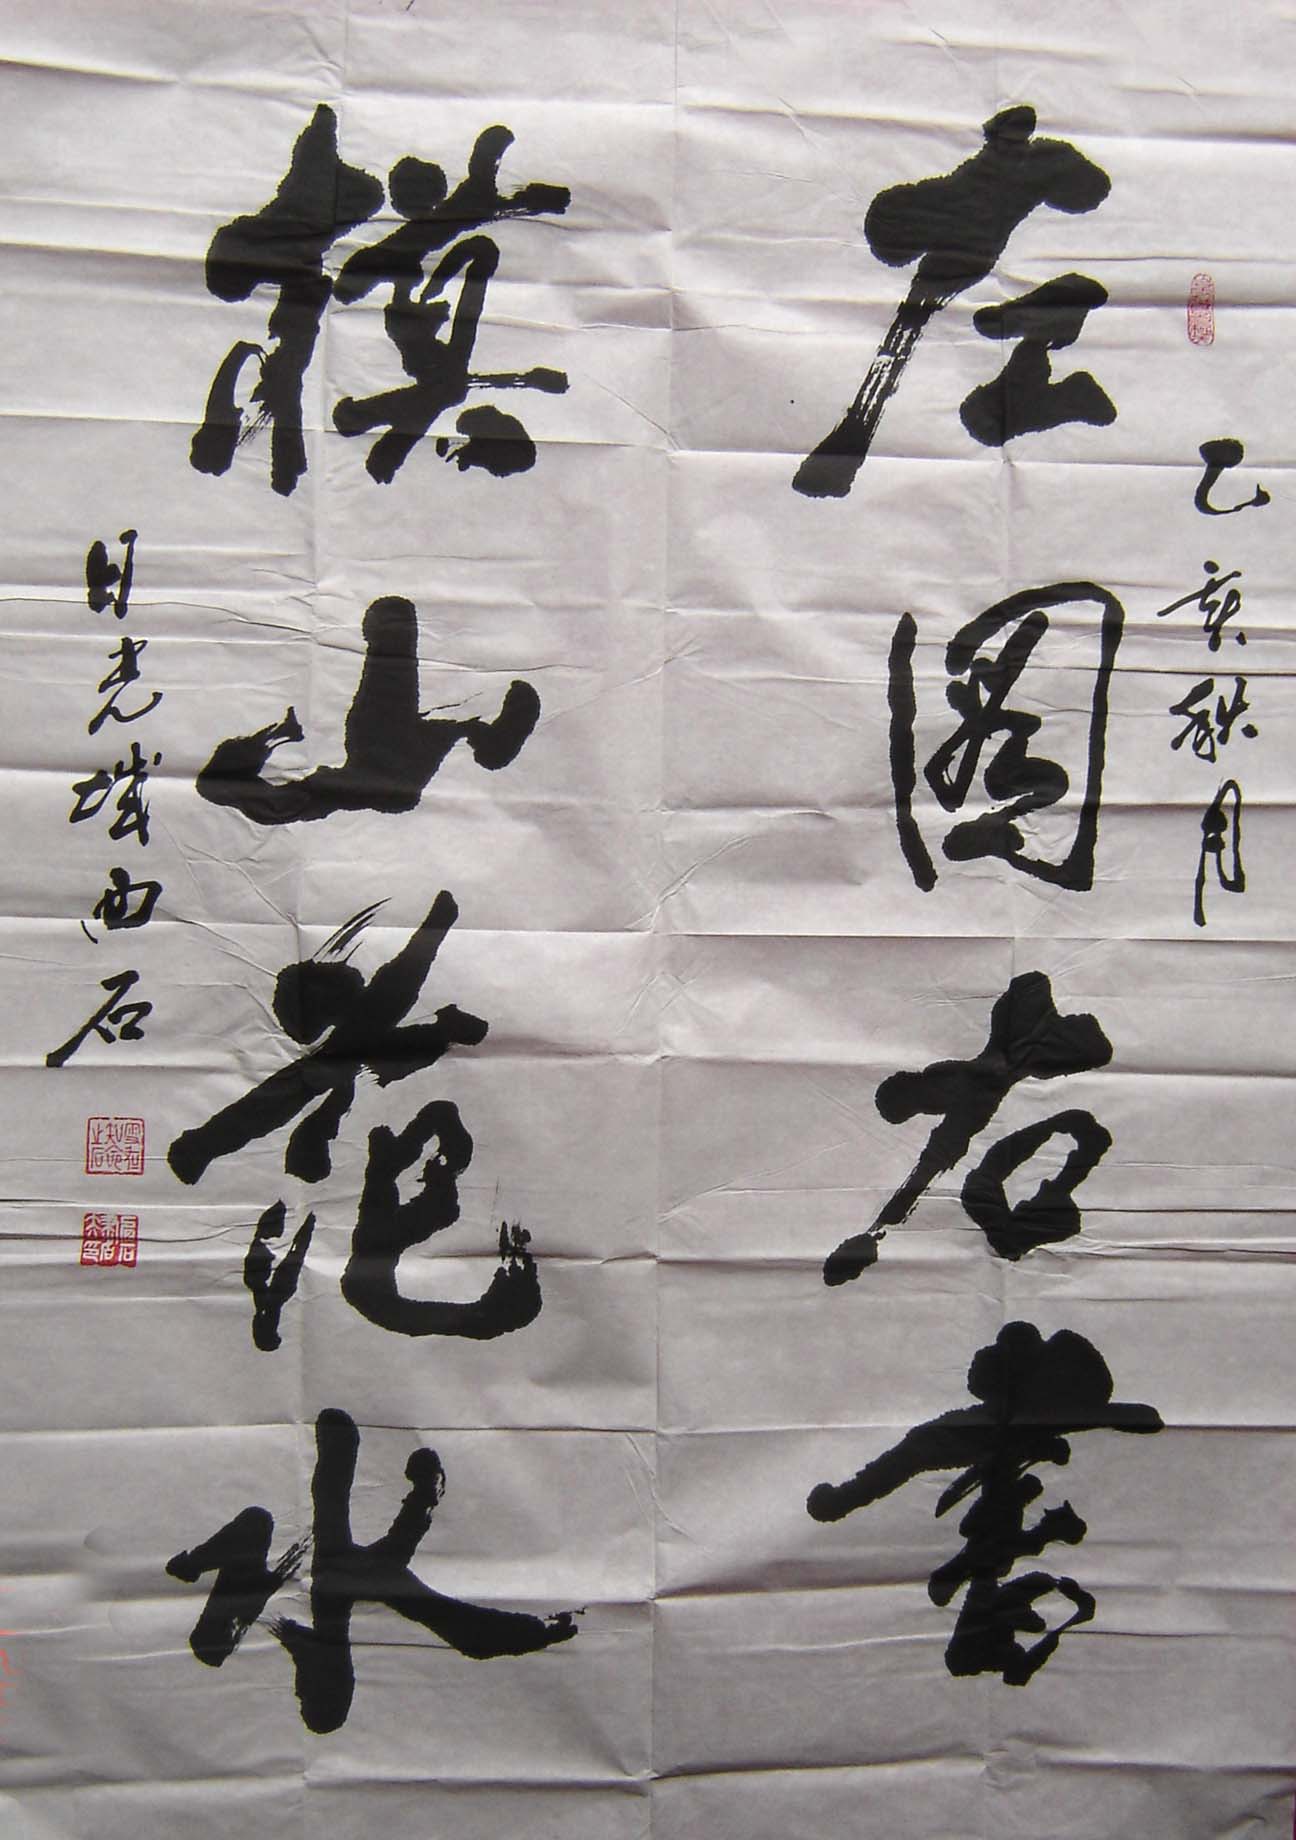 乙亥秋月
左图右书
模山范水
日光城西石